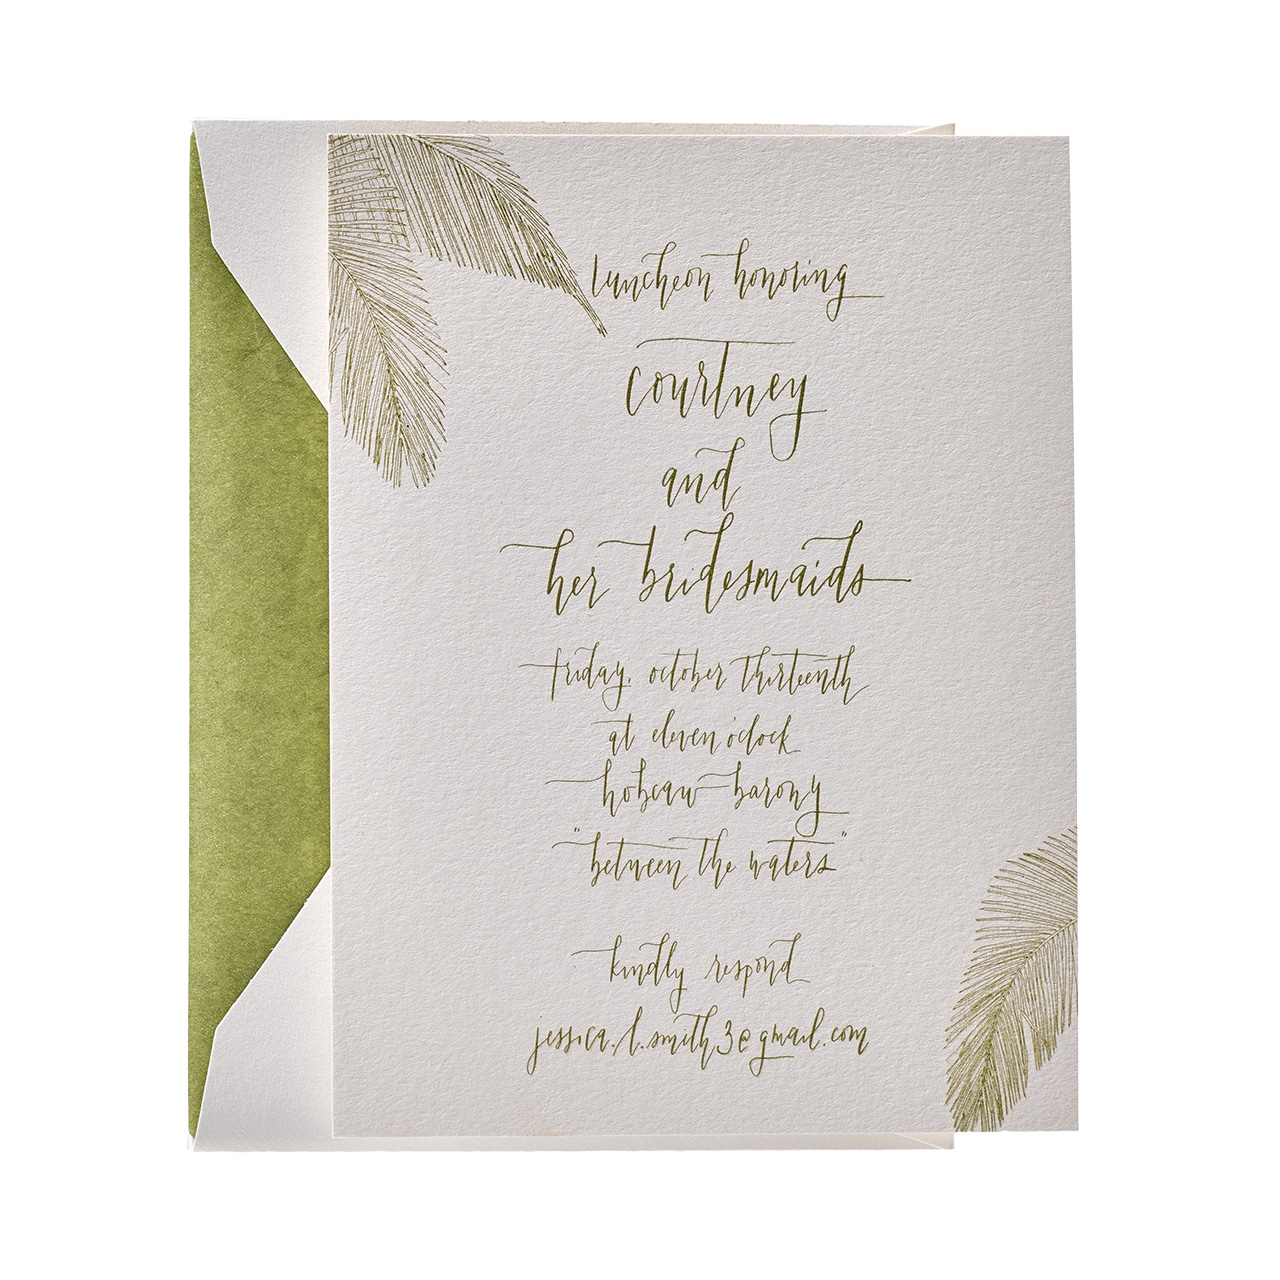 luncheon honoring
courtney
and
her bridesmaids
friday, october thirteenth
at eleven o'clock
hobcaw barony
"between the waters"
kindly respond
jessica.l.smith3@gmail.com